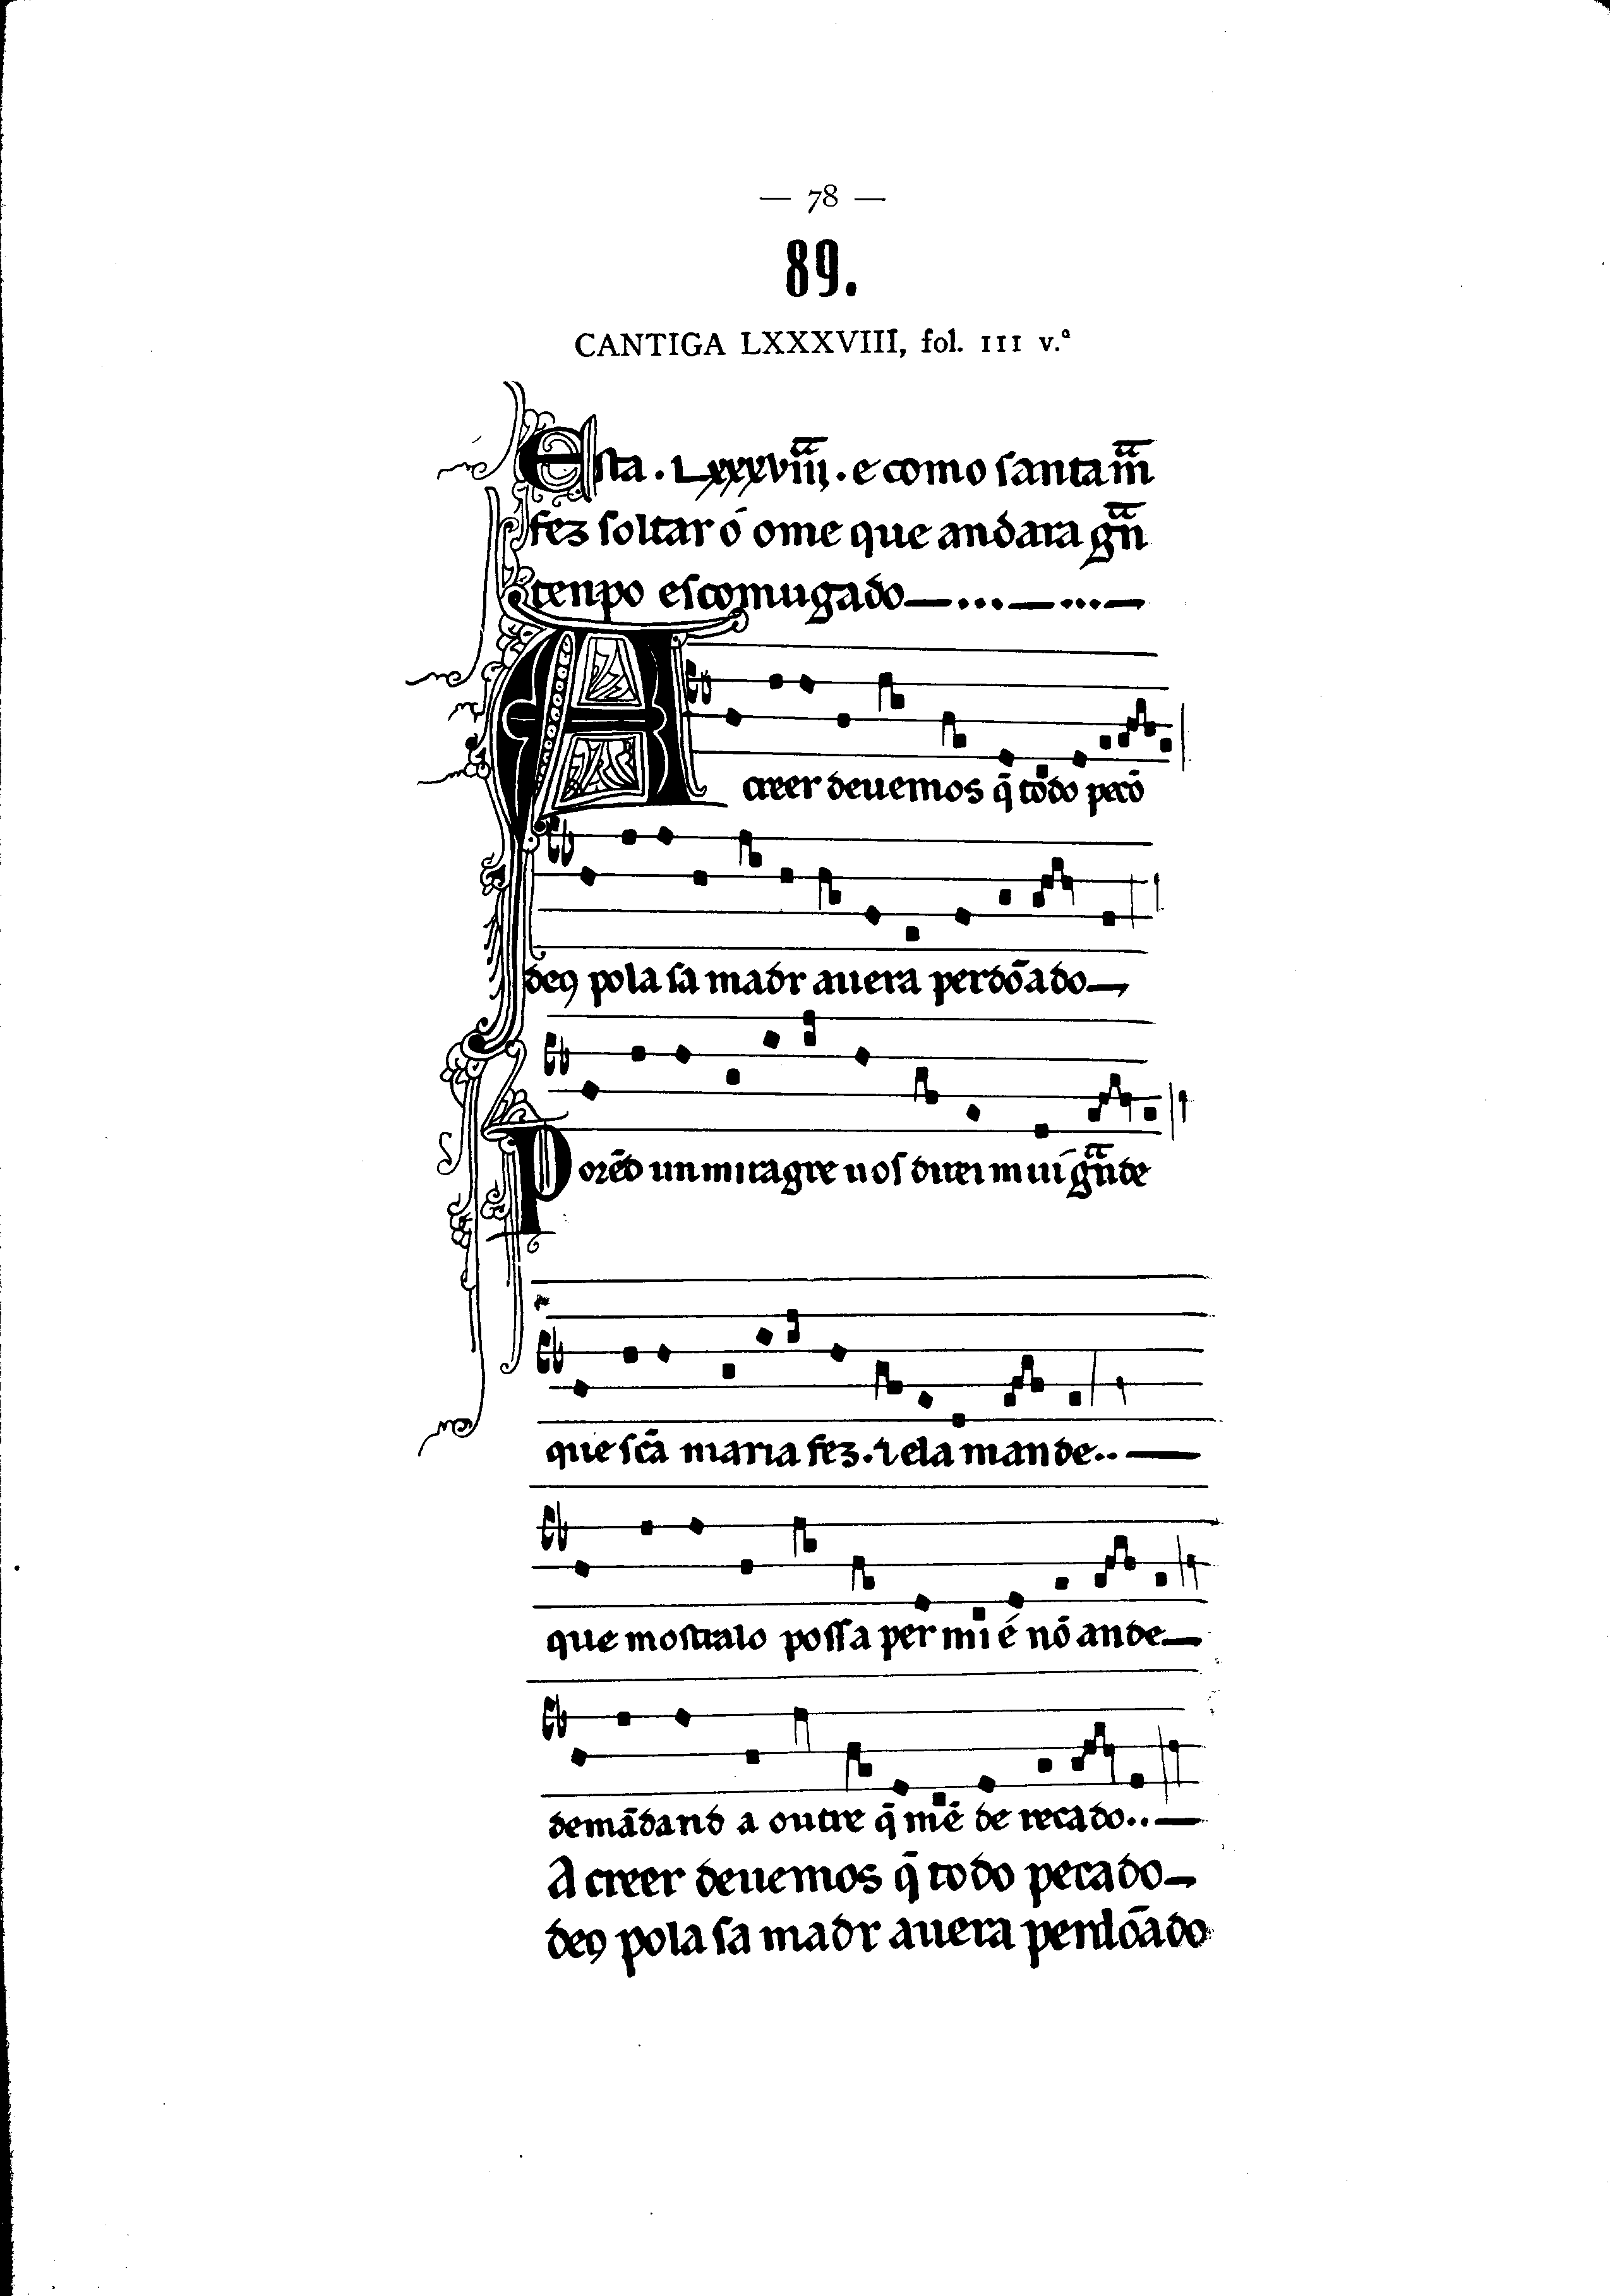 — 78 —
89.
CANTIGA LXXXVIII, fol. 111 v.ª
Esta . Lxxxviiijª . e como santa mª
fez soltar ó ome que andara gn̄ª
tenpo escomugado — ... — ... —
A creer deuemos q̄ todo pecō
deꝯ pola sa madr auera perdōado —
Porēd un miragre uos direi mui gn̄ªde
que sc̄a maria fez . ⁊ ela mande .. —
que mostralo possa per mi é nō ande —
demādand a outre q̄ mē de recado .. —
A creer deuemos q̄ todo pecado —
deꝯ pola sa madr auera perdōado